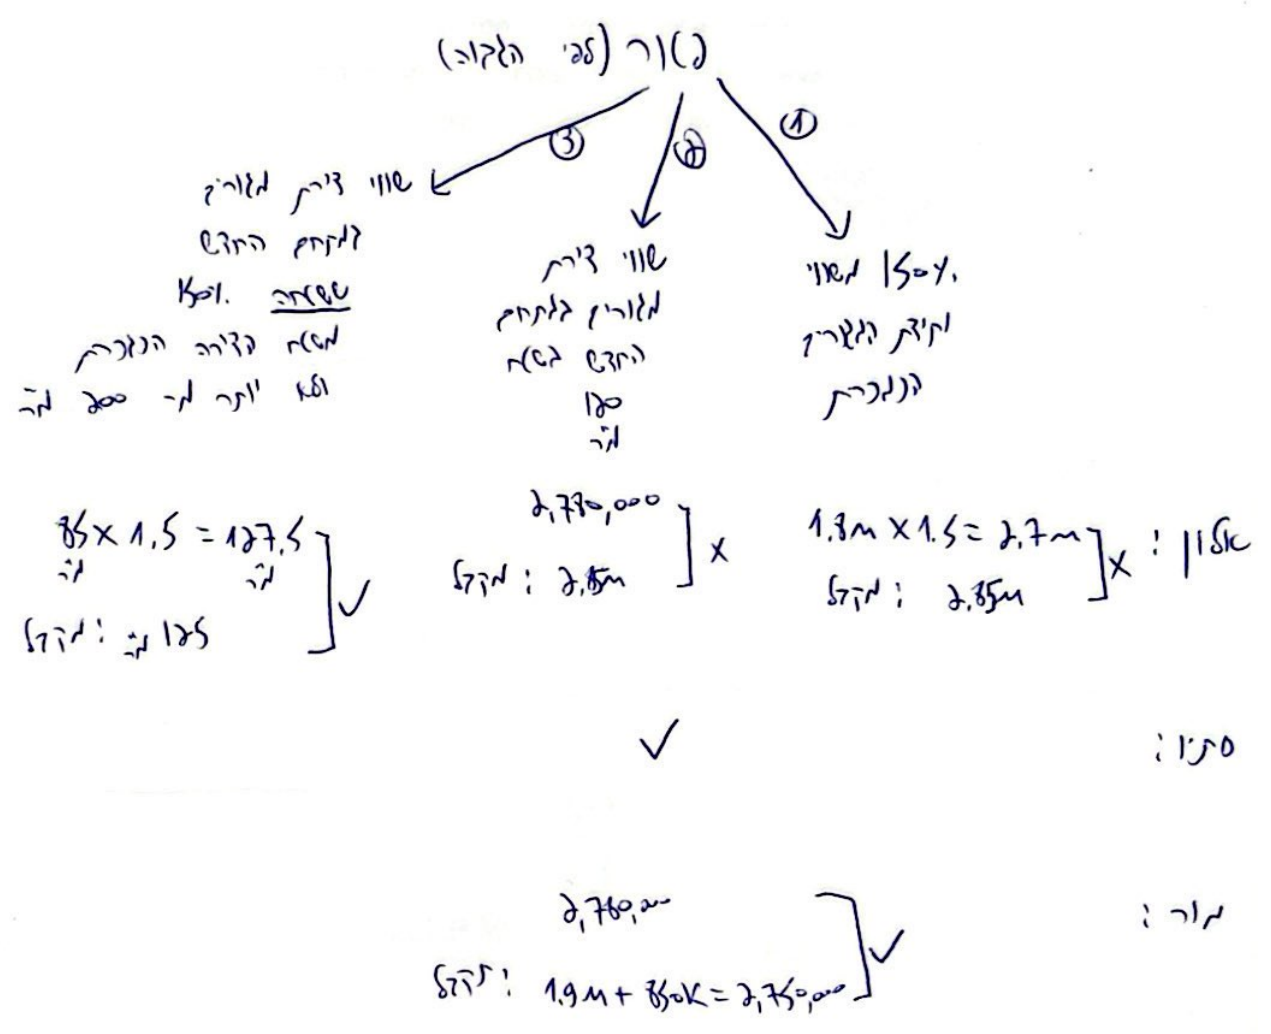 פטור (לפי הגבוה)
①
150% משווי
יחידת המגורים
הנמכרת
②
שווי דירת
מגורים במתחם
החדש בשטח
120
מ"ר
③
שווי דירת מגורים
במתחם החדש
ששטחה 150%
משטח הדירה הנמכרת
ולא יותר מ- 200 מ"ר
אלון:
1.8m x 1.5 = 2.7m
מקבל: 2.85m
x
2,780,000
מקבל: 2.85m
x
85 x 1.5 = 127.5
מ"ר מ"ר
מקבל: 125 מ"ר
✓
סתיו:
✓
מור:
2,760,000
תקבל: 1.9M + 850K = 2,750,000
✓